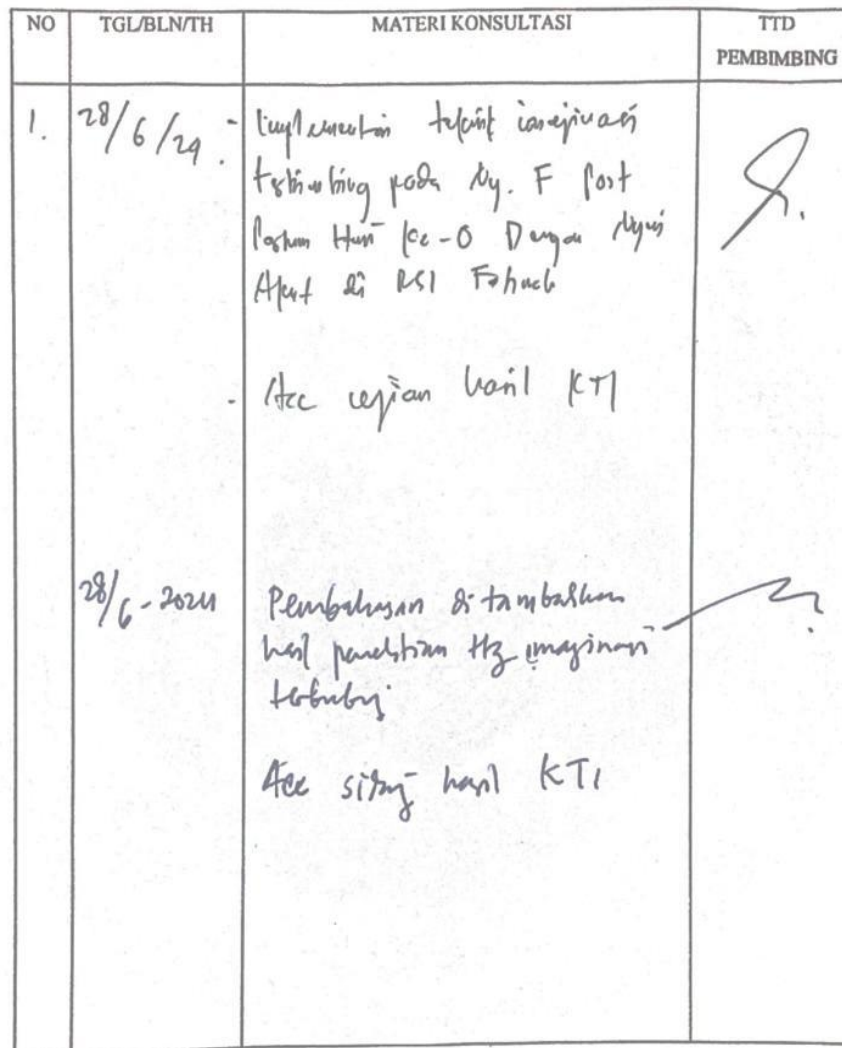 NO TGL/BLN/TH MATERI KONSULTASI TTD PEMBIMBING
1. 28/6/24 - Implementasi teknik imajinasi
terbimbing pada Ny. F Post
Partum Hari Ke-0 Dengan Nyeri
Akut di RSI Fatimah
- Acc ujian hasil KTI
28/6-2024 Pembahasan di tambahkan
hasil penelitian ttg imaginasi
terbimbing
Acc sidang hasil KTI